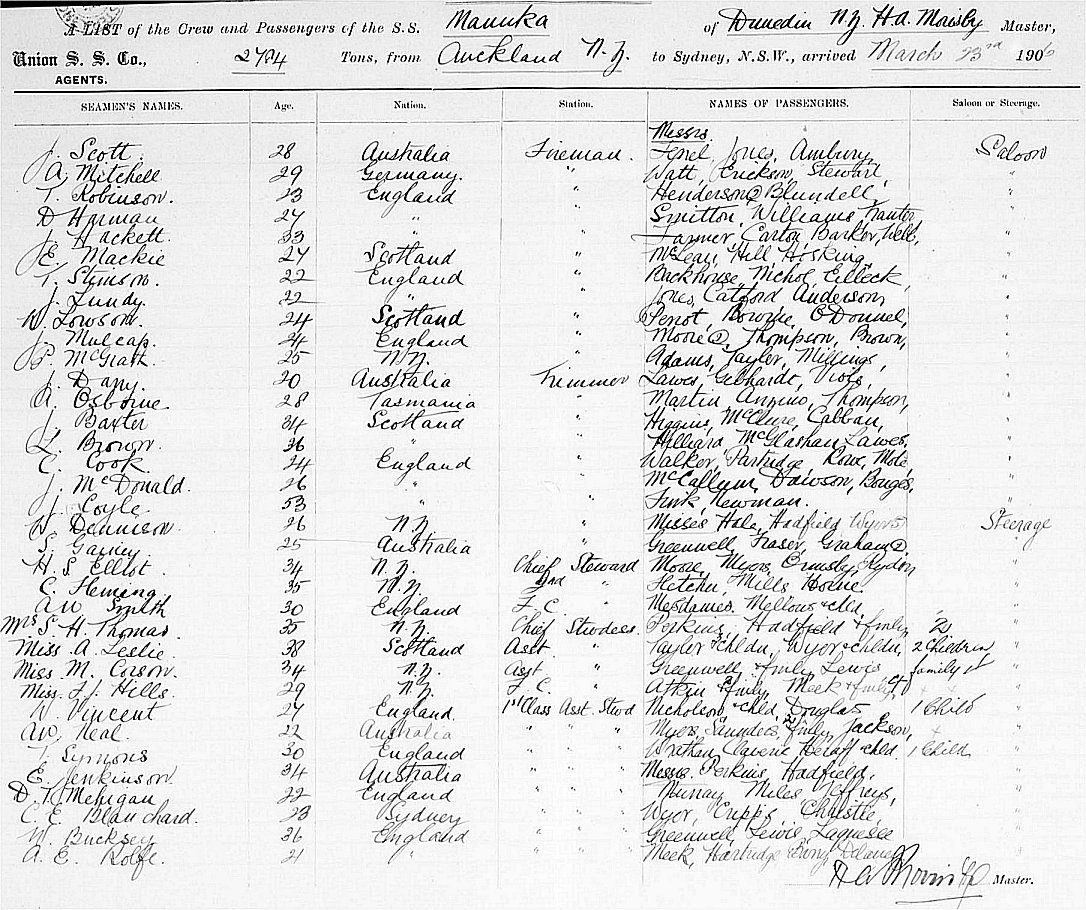 A LIST of the Crew and Passengers of the S.S. Manuka of Dunedin N.Z. H.A. Master,
Union S. S. Co., AGENTS. Tons, from Auckland N.Z. to Sydney, N.S.W., arrived March 23rd 1906
SEAMEN'S NAMES. Age. Nation. Station. NAMES OF PASSENGERS. Saloon or Steerage.
Messrs.
J. Scott. 28 Australia Fireman. Jones, Ambury, Saloon
A. Mitchell 29 Germany. " Watt, Erickson, Stewart, "
T. Robinson. 23 England " Henderson 2 Blundell, "
D Harman 27 " " Smitton, Williams, Hunter, "
J. Hackett. 33 " " Farmer, Carton, Barker, Webb, "
E. Mackie 27 Scotland " McLean, Hill, Hosking, "
T. Stinson. 22 England " Backhouse, Nichol, "
J. Lundy. 22 " " Jones, Catford Anderson, "
W. Lowson. 24 Scotland " Perrot, Bowrie, O'Donnel, "
J. Mulcap. 24 England " Moore 2, Thompson, Brown, "
P. McGrath. 25 N.Z. " Adams, Taylor, Millings, "
J. Dany. 20 Australia Trimmer Lawes, Gebhardt, "
A. Osborne. 28 Tasmania " Martin Thompson, "
J. Baxter 34 Scotland " Higgins, McClure, Cabban, "
L. Brown. 36 " " Hilliard McGlashan Lawes, "
C. Cook 24 England " Walker, Partridge, Rowe, Mote "
J. McDonald. 26 " " McCallum, Dawson, "
J. Coyle. 53 " " Fink, Newman. "
W. Dennison. 26 N.Z. " Misses Hale, Hadfield Steerage
S. Garvey. 25 Australia " Greenwell, Fraser, Graham 2, "
H. S. Elliot. 34 N.Z. Chief Steward Moore, Myers, Ormsby, Rydon "
C. Fleming. 35 N.Z. 2nd " Fletcher, Mills, "
A W Smith 30 England F. C. " Mesdames. Mellows & chld, "
Mrs S. H. Thomas. 35 N.Z. Chief Stwdess. Perkins, Hadfield & fmly "
Miss. A. Leslie. 38 Scotland Asst. " Taylor & chldn, Wyor & chldn, 2 Children "
Miss M. Corson. 34 N.Z. Asst " Greenwell & fmly Lewis family "
Miss. F. J. Hills. 29 N.Z. F. C. " Atkin & fmly, Meek & fmly "
W. Vincent 27 England. 1st Class Asst. Stwd Nicholson & chld, Douglas 1 Child "
A W, Neal. 22 Australia " " " Myers, Saunders, & fmly Jackson, "
T. Symons 30 England " " " & chld. 1 Child "
E. Jenkinson. 34 Australia " " " Messrs. Perkins, Hadfield, "
D. T. Mehigan 22 England " " " Murray Miles Jeffreys, "
C. E. Blanchard. 23 Sydney " " " Wyor, Cripps, Christie, "
W. Bucksey 36 England " " " Greenwell, Lewis, "
A. E. Rolfe. 21 " " " " Meek, Hartridge Delaney
Master.